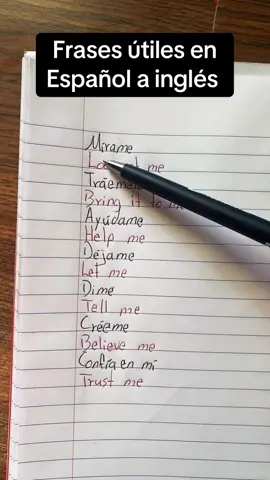 Frases útiles en
Español a inglés
Mírame
me
Bring it to me
Ayúdame
Help me
Déjame
Let me
Dime
Tell me
Créeme
Believe me
Confía en mí
Trust me